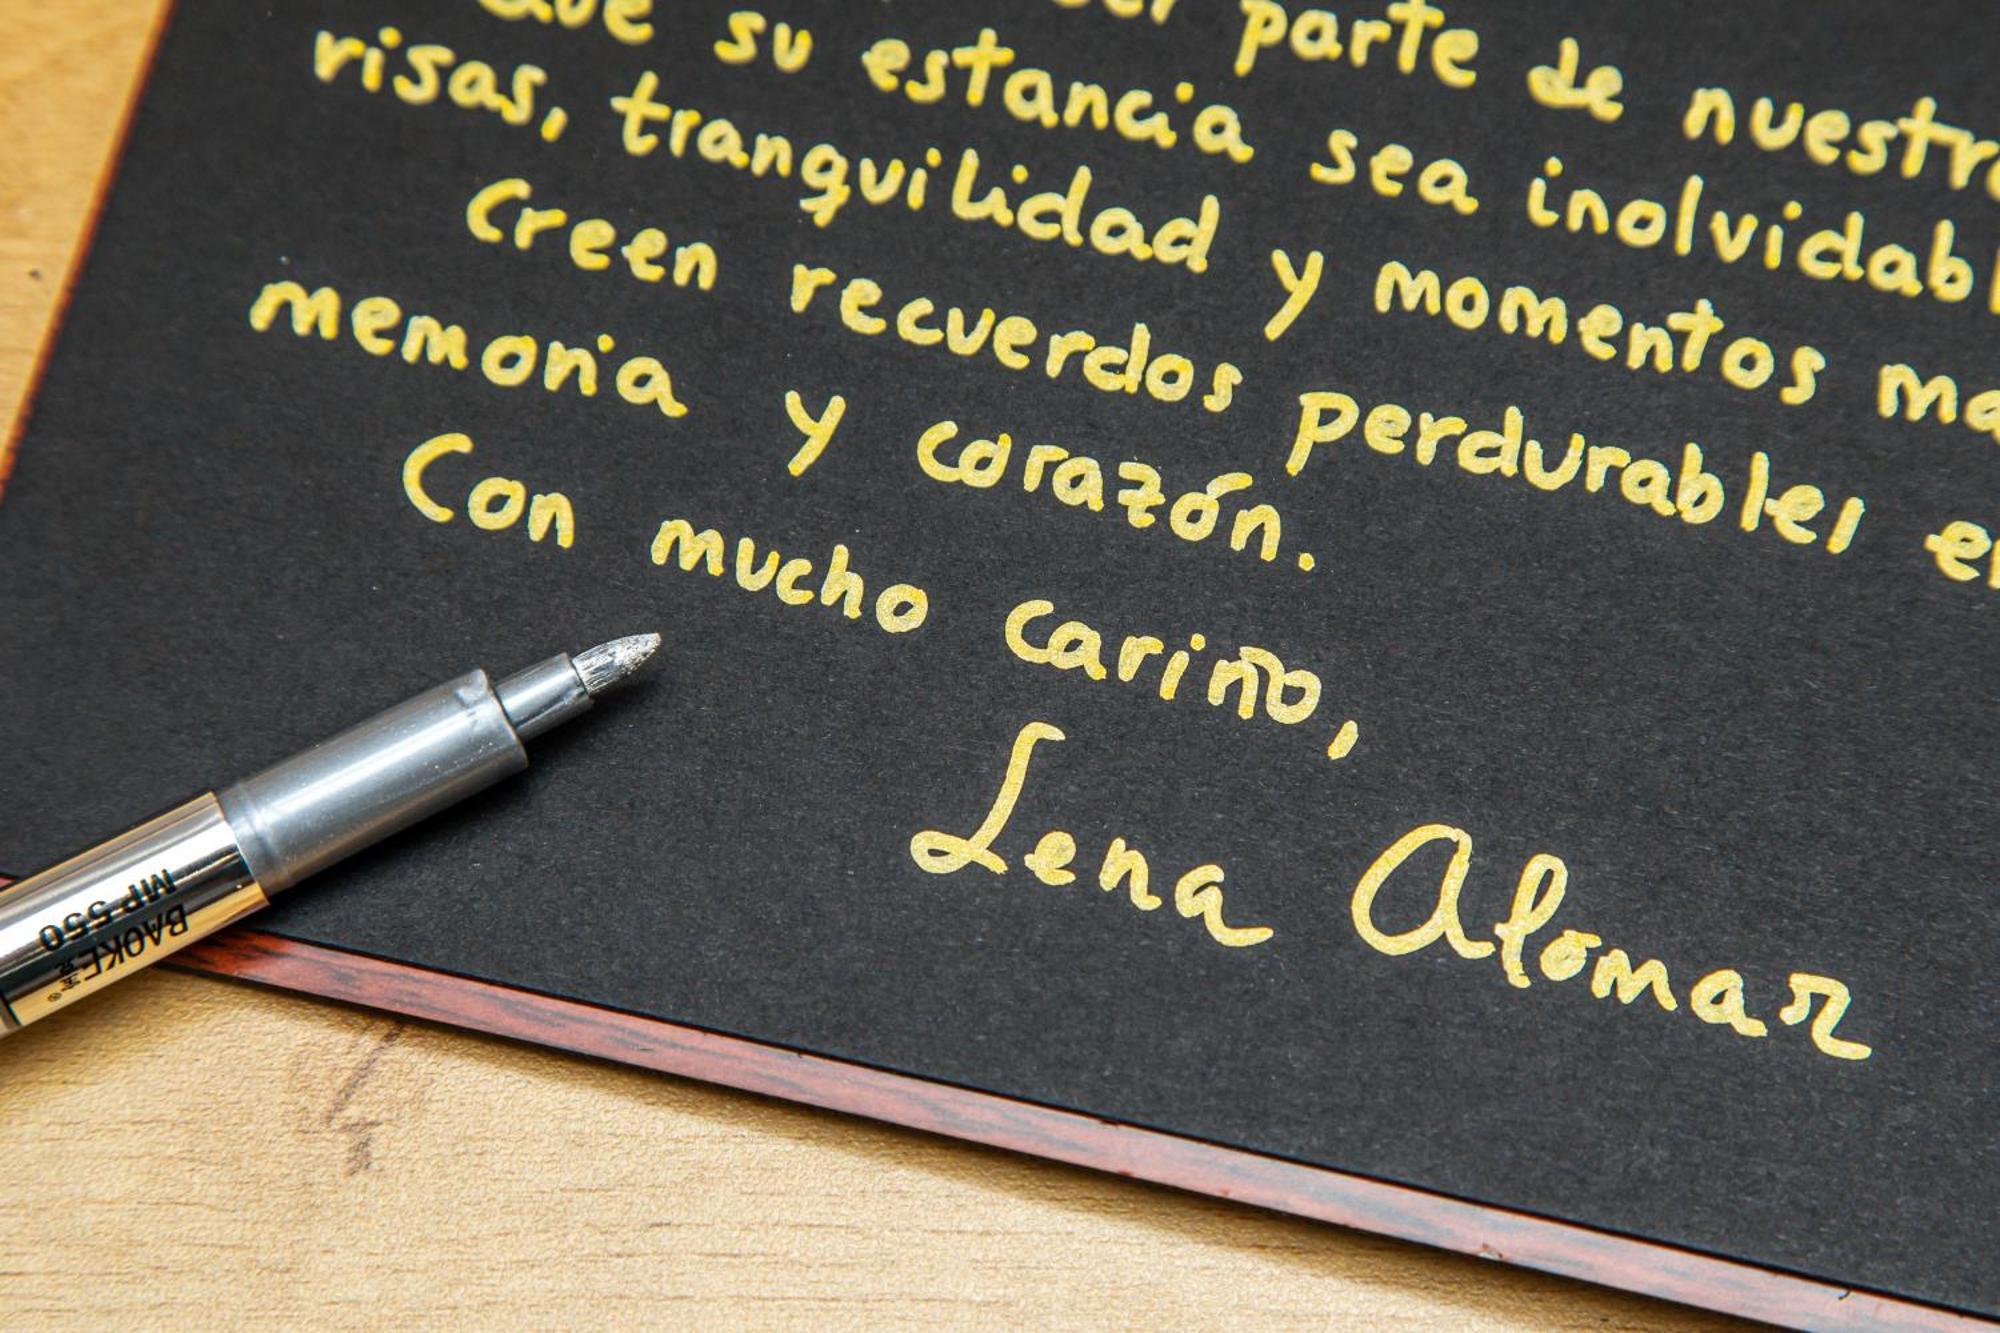 parte de nuestr
su estancia sea inolvidabl
risas, tranquilidad y momentos ma
Creen recuerdos perdurables en
memoria y corazón.
Con mucho cariño,
Lena Alomar
BAOKE
MP 550